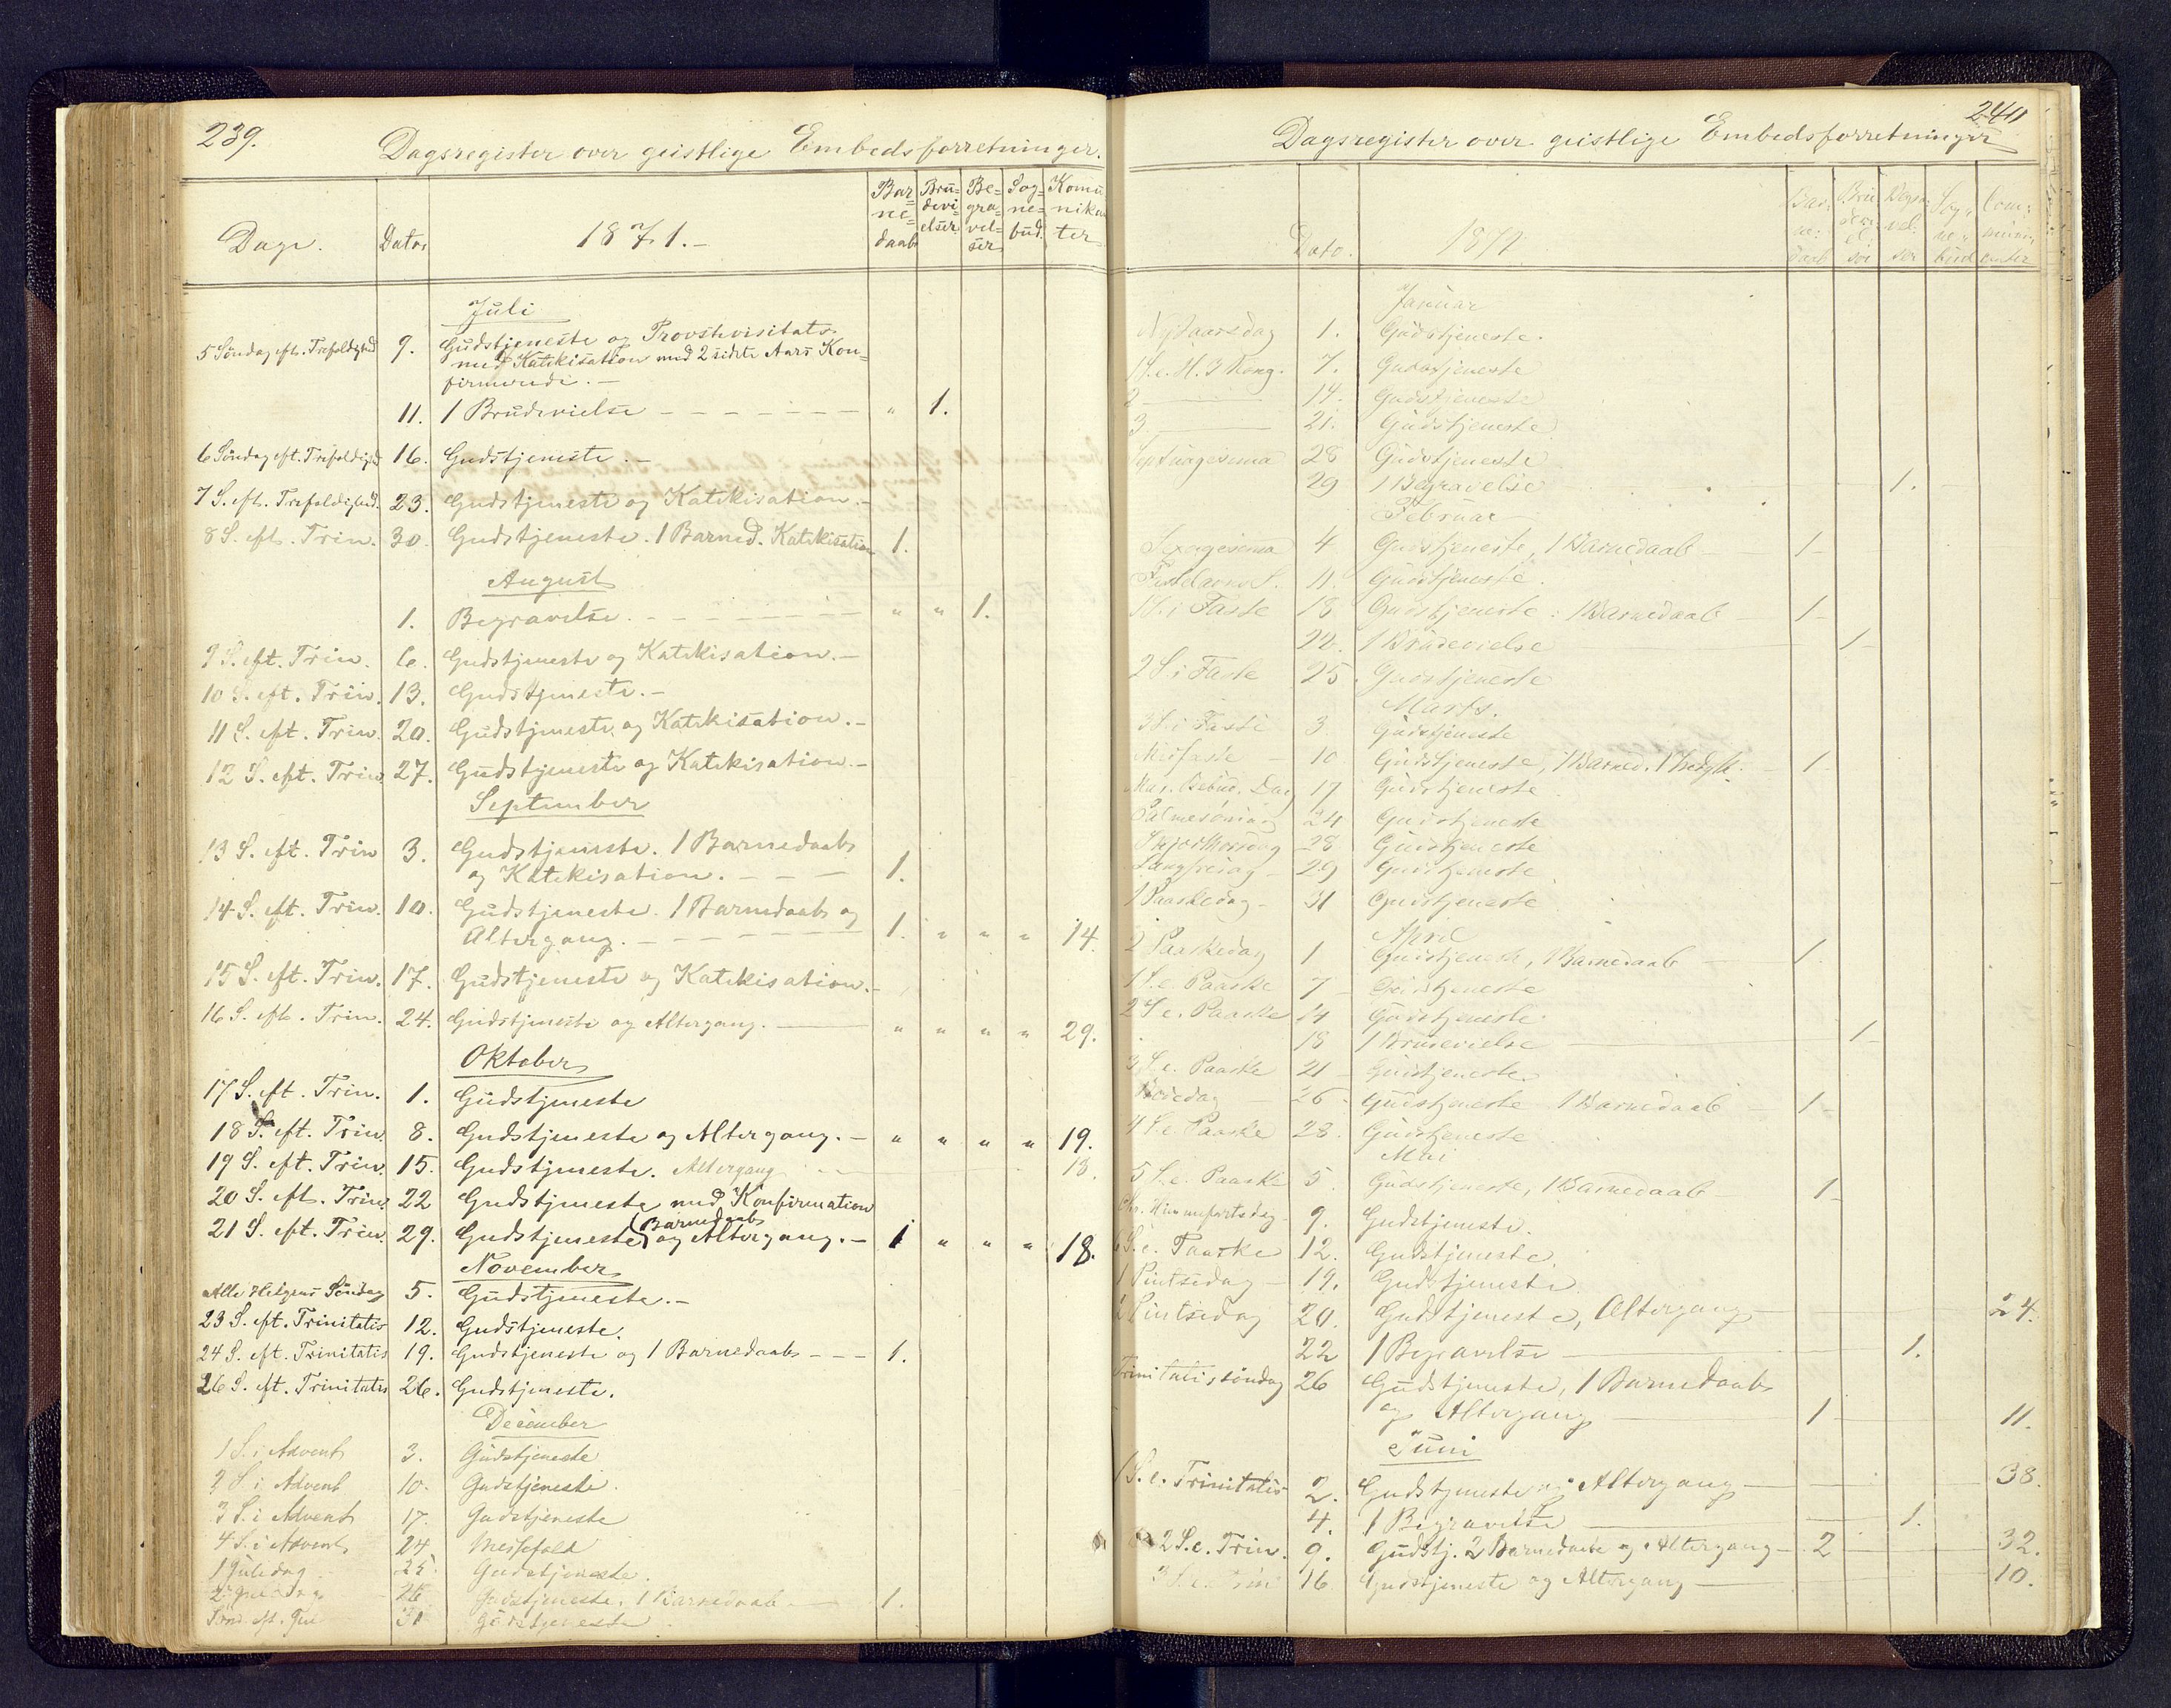 239.
Dagsregister over geistlige Embedsforretninger.
Dage. Dato. 1871.- Bar=ne=daab Brü=devi=elser Be=gra=vel=ser Sog=ne=bud. Komu nikan ter
Juli
5 Söndag eft. Trefoldighed 9. Gudstjeneste og Provstevisitats
med Katekisation med 2 sidste Aars Kon=
firmerede.-
11. 1 Brudevielse - - - - - - - " 1.
6 Söndag eft. Trefoldighed 16. Gudstjeneste.-
7 S. eft. Trefoldighed. 23. Gudstjeneste og Katekisation.-
8 S. eft. Trin. 30. Gudstjeneste. 1 Barned. Katekisation 1.
August
1. Begravelse. - - - - - - " " 1.
9 S. eft. Trin. 6. Gudstjeneste og Katekisation.-
10 S. eft. Trin. 13. Gudstjeneste.-
11 S. eft. Trin. 20. Gudstjeneste og Katekisation.-
12 S. eft. Trin. 27. Gudstjeneste og Katekisation.-
September
13 S. eft. Trin 3. Gudstjeneste. 1 Barnedaab
og Katekisation. - - - 1.
14 S. eft. Trin. 10. Gudstjeneste. 1 Barnedaab og
Altergang. - - - - - - 1. " " " 14.
15 S. eft. Trin. 17. Gudstjeneste og Katekisation.-
16 S. eft. Trin. 24. Gudstjeneste og Altergang. - " " " " 29.
Oktober
17 S. eft. Trin. 1. Gudstjeneste
18 S. eft. Trin. 8. Gudstjeneste og Altergang.- " " " " 19.
19 S. eft. Trin. 15. Gudstjeneste. Altergang 13.
20 S. eft. Trin. 22 Gudstjeneste med Konfirmation
21 S. eft. Trin. 29. Gudstjeneste (Barnedaab og Altergang.- 1 " " " 18.
November
Alle Helgens Söndag 5. Gudstjeneste.-
23 S. eft. Trinitatis 12. Gudstjeneste.
24 S. eft. Trinitatis 19. Gudstjeneste og 1 Barnedaab - - - 1.
26 S. eft. Trinitatis 26. Gudstjeneste.
December
1 S. i Advent 3. Gudstjeneste
2 S. i Advent 10. Gudstjeneste.
3 S. i Advent 17. Gudstjeneste
4 S. i Advent 24 Messefald
1 Juledag 25. Gudstjeneste.
2 Juledag 26 Gudstjeneste. 1 Barnedaab - 1.
Sönd. eft. Jul 31 Gudstjeneste.
240
Dagsregister over geistlige Embedsforretninger
Dato. 1872 Bar: ne: daab Brü dev: el: ser Begra: vel: ser Sog: ne: bud Com: muni: canter
Januar
Nytaarsdag 1. Gudstjeneste.
1 S. e. H. 3 Kong. 7. Gudstjeneste
2 — 14. Gudstjeneste
3 — 21. Gudstjeneste
Septuagesima 28 Gudstjeneste
29 1 Begravelse 1.
Februar
Sexagesima 4 Gudstjeneste, 1 Barnedaab - 1-
Fastelavns S. 11. Gudstjeneste.
1 S. i Faste 18 Gudstjeneste: 1 Barnedaab - 1-
22. 1 Brudevielse 1-
2 S. i Faste 25. Gudstjeneste
Marts.
3 S. i Faste 3. Gudstjeneste
Midfaste - 10 Gudstjeneste, 1 Barned. - 1-
Mar. Bebud. Dag 17 Gudstjeneste.
Palmesöndag 24 Gudstjeneste
Skjærthorsdag 28 Gudstjeneste
Langfredag - 29 Gudstjeneste.
1 Paaskedag - 31 Gudstjeneste
April
2 Paaskedag 1 Gudstjeneste, 1 Barnedaab - 1.
1 S. e. Paaske 7 Gudstjeneste
2 S. e. Paaske 14 Gudstjeneste.
18 1 Brudevielse - 1-
3 S. e. Paaske 21 Gudstjeneste.
Bededag - 26 Gudstjeneste 1 Barnedaab - 1-
4 S. e. Paaske 28. Gudstjeneste
Mai
5 S. e. Paaske 5. Gudstjeneste, 1 Barnedaab - 1-
Chr. Himmelfartsdag - 9. Gudstjeneste.
6 S. e. Paaske 12. Gudstjeneste.
1 Pintsedag - 19. Gudstjeneste
2 Pintsedag 20. Gudstjeneste, Altergang - 24.
22 1 Begravelse - 1.
Trinitatissöndag 26 Gudstjeneste, 1 Barnedaab
og Altergang - 1 11.
Juni
1 S. e. Trinitatis 2. Gudstjeneste og Altergang - 38.
4. 1 Begravelse - 1.
2 S. e. Trin. 9. Gudstj. 2 Barnedaabe og Altergang - 2 32.
3 S. e. Trin 16 Gudstjeneste og Altergang - 10.